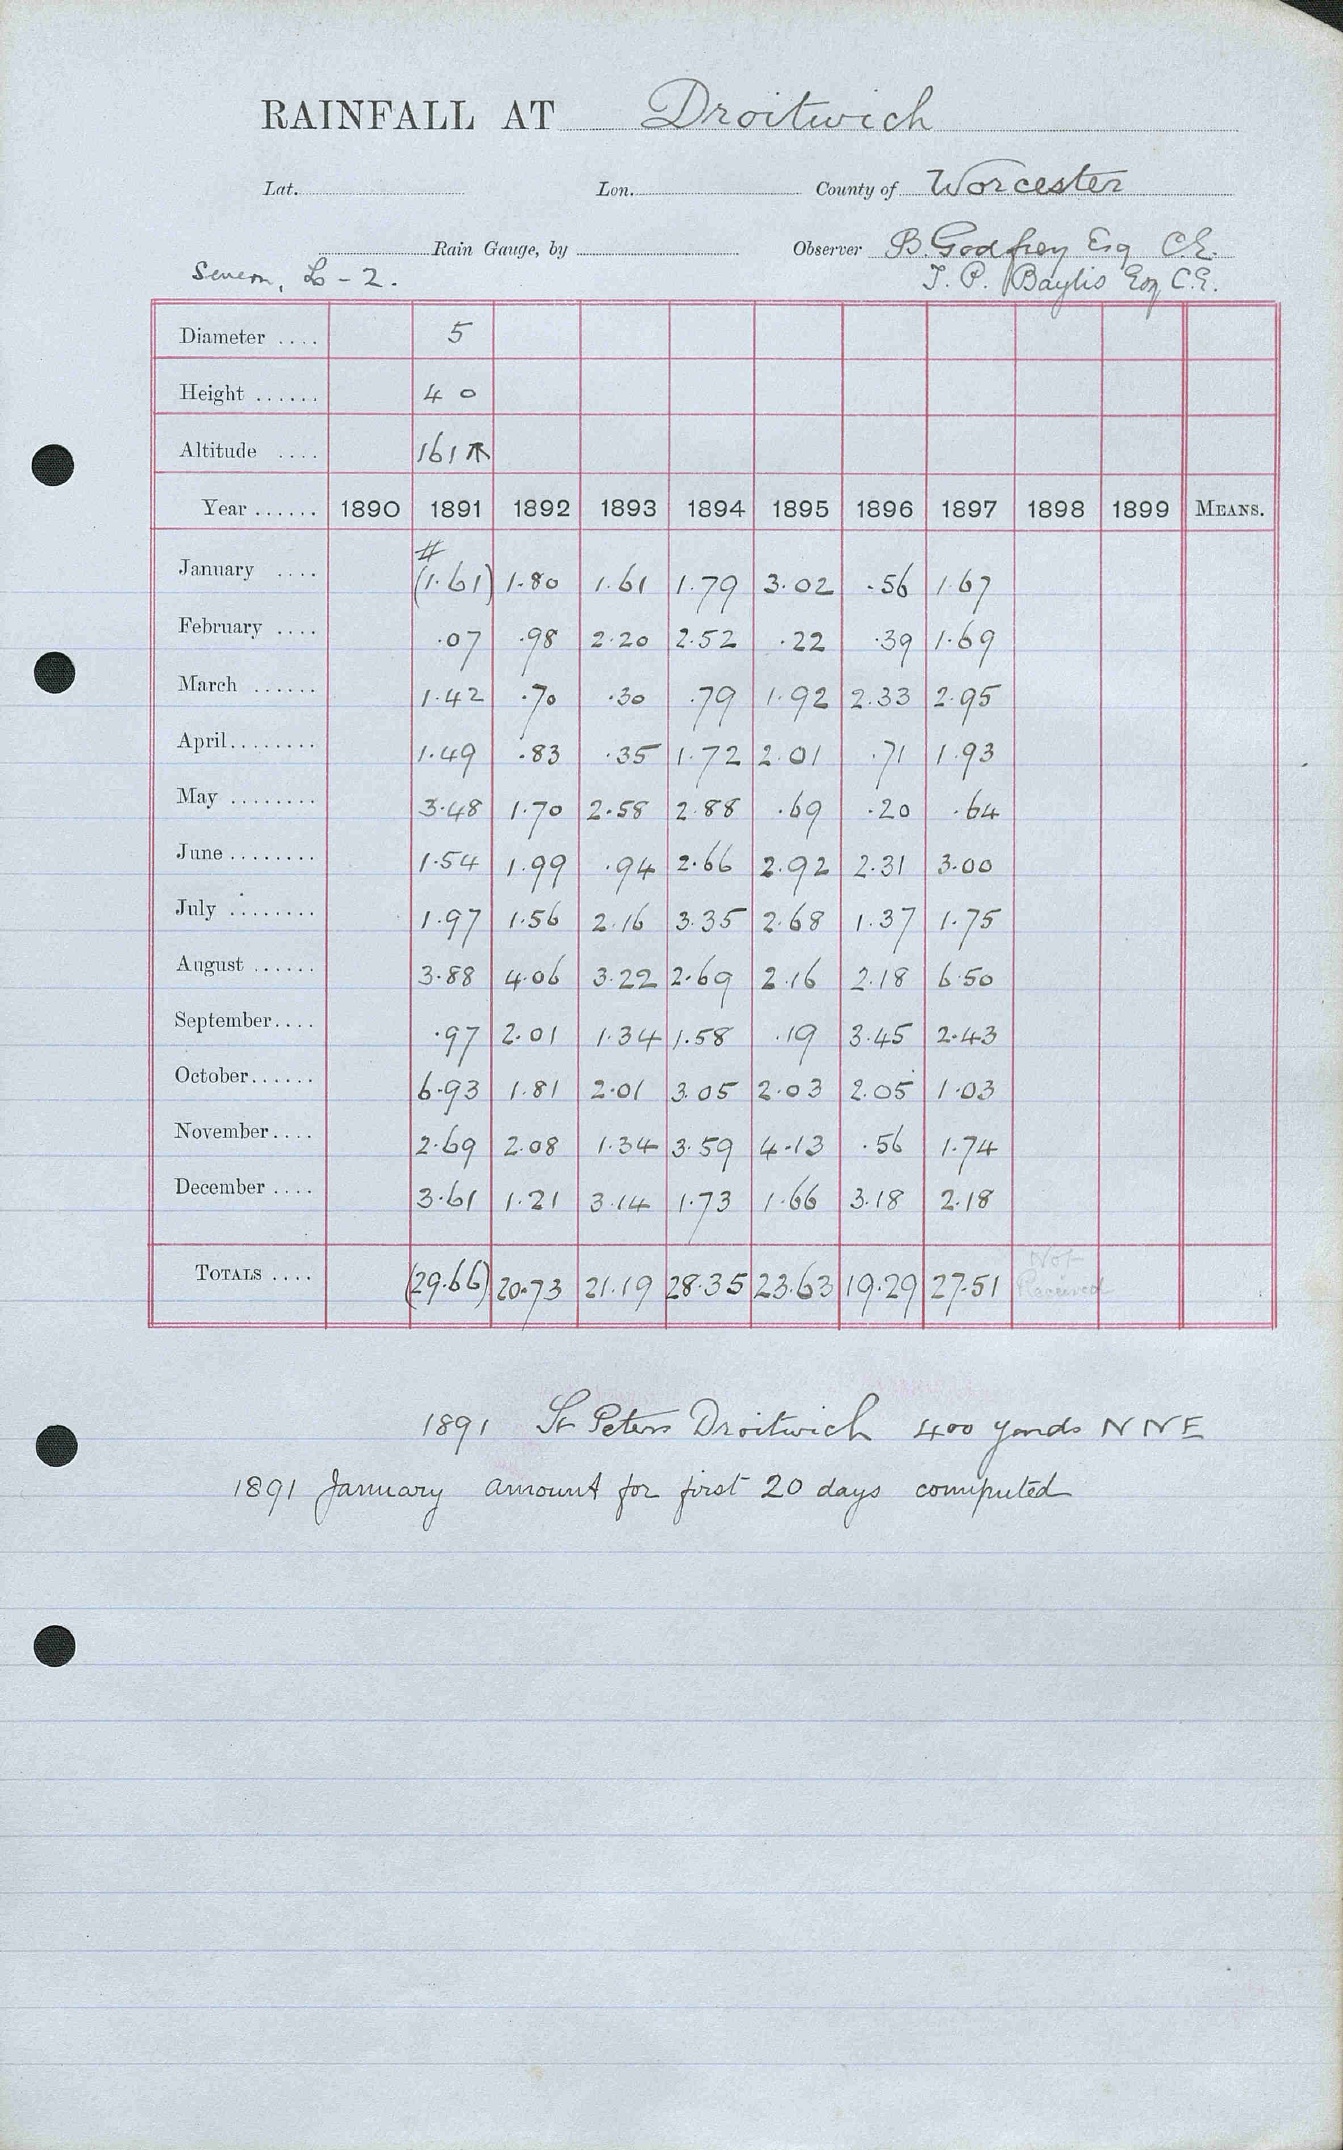 RAINFALL AT Droitwich
Lat. Lon. County of Worcester
Rain Gauge, by Observer B. Godfrey Esq C.E.
Severn, L - 2. T. P. Baylis Esq C.E.
Diameter .... 5
Height ...... 4 0
Altitude .... 161
Year ...... 1890 1891 1892 1893 1894 1895 1896 1897 1898 1899 MEANS.
#
January .... (1.61) 1.80 1.61 1.79 3.02 .56 1.67
February .... .07 .98 2.20 2.52 .22 .39 1.69
March ...... 1.42 .70 .30 .79 1.92 2.33 2.95
April........ 1.49 .83 .35 1.72 2.01 .71 1.93
May ........ 3.48 1.70 2.58 2.88 .69 .20 .64
June ........ 1.54 1.99 .94 2.66 2.92 2.31 3.00
July ........ 1.97 1.56 2.16 3.35 2.68 1.37 1.75
August ...... 3.88 4.06 3.22 2.69 2.16 2.18 6.50
September.... .97 2.01 1.34 1.58 .19 3.45 2.43
October...... 6.93 1.81 2.01 3.05 2.03 2.05 1.03
November.... 2.69 2.08 1.34 3.59 4.13 .56 1.74
December .... 3.61 1.21 3.14 1.73 1.66 3.18 2.18
TOTALS .... (29.66) 20.73 21.19 28.35 23.63 19.29 27.51 Not Received
1891 St Peters Droitwich 400 yards N N E
1891 January amount for first 20 days computed